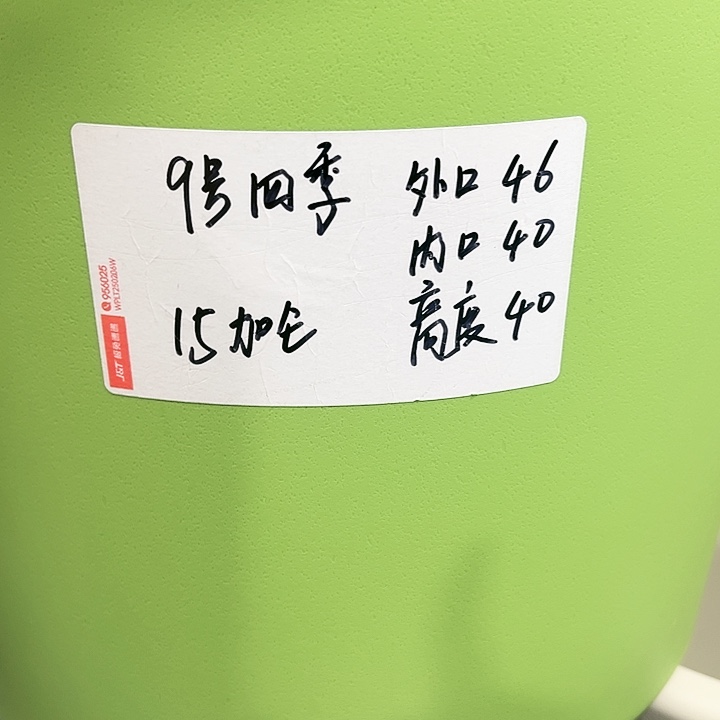 9号四季
15加仑
外口 46
内口 40
高度 40
956025
WPLT250206W
J&T 极兔速递